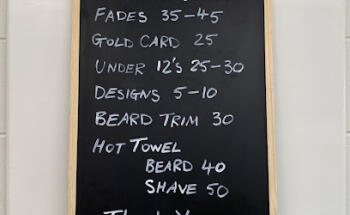 FADES 35-45
GOLD CARD 25
UNDER 12's 25-30
DESIGNS 5-10
BEARD TRIM 30
HOT TOWEL
BEARD 40
SHAVE 50